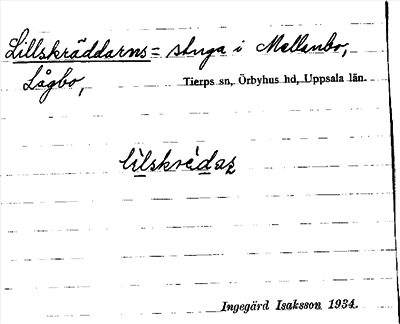 Lillskräddarns = stuga i Mellanbo,
Lågbo, Tierps sn, Örbyhus hd, Uppsala län.
lilskrédaṣ
Ingegärd Isaksson 1934.